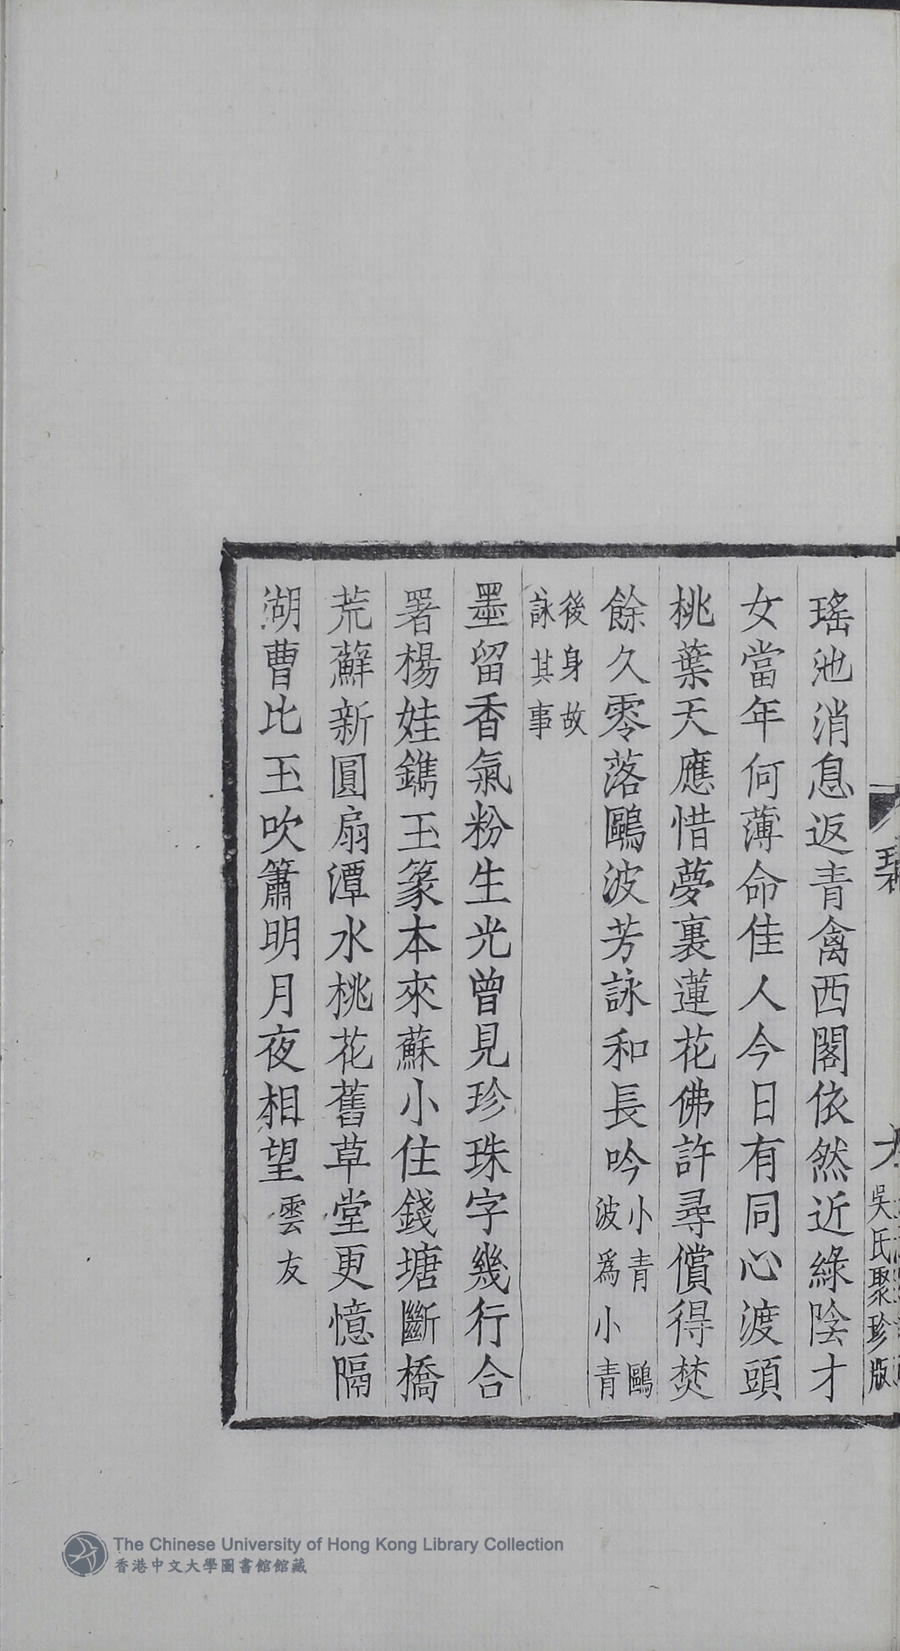 瑤池消息返青禽西閣依然近綠陰才
女當年何薄命佳人今日有同心渡頭
桃葉天應惜夢裏蓮花佛許尋償得焚
餘久零落鷗波芳詠和長吟小青 鷗
波爲小青
後身故
詠其事
墨留香氣粉生光曾見珍珠字幾行合
署楊娃鐫玉篆本來蘇小住錢塘斷橋
荒蘚新圓扇潭水桃花舊草堂更憶隔
湖曹比玉吹簫明月夜相望雲友
吳氏聚珍版
The Chinese University of Hong Kong Library Collection
香港中文大學圖書館館藏